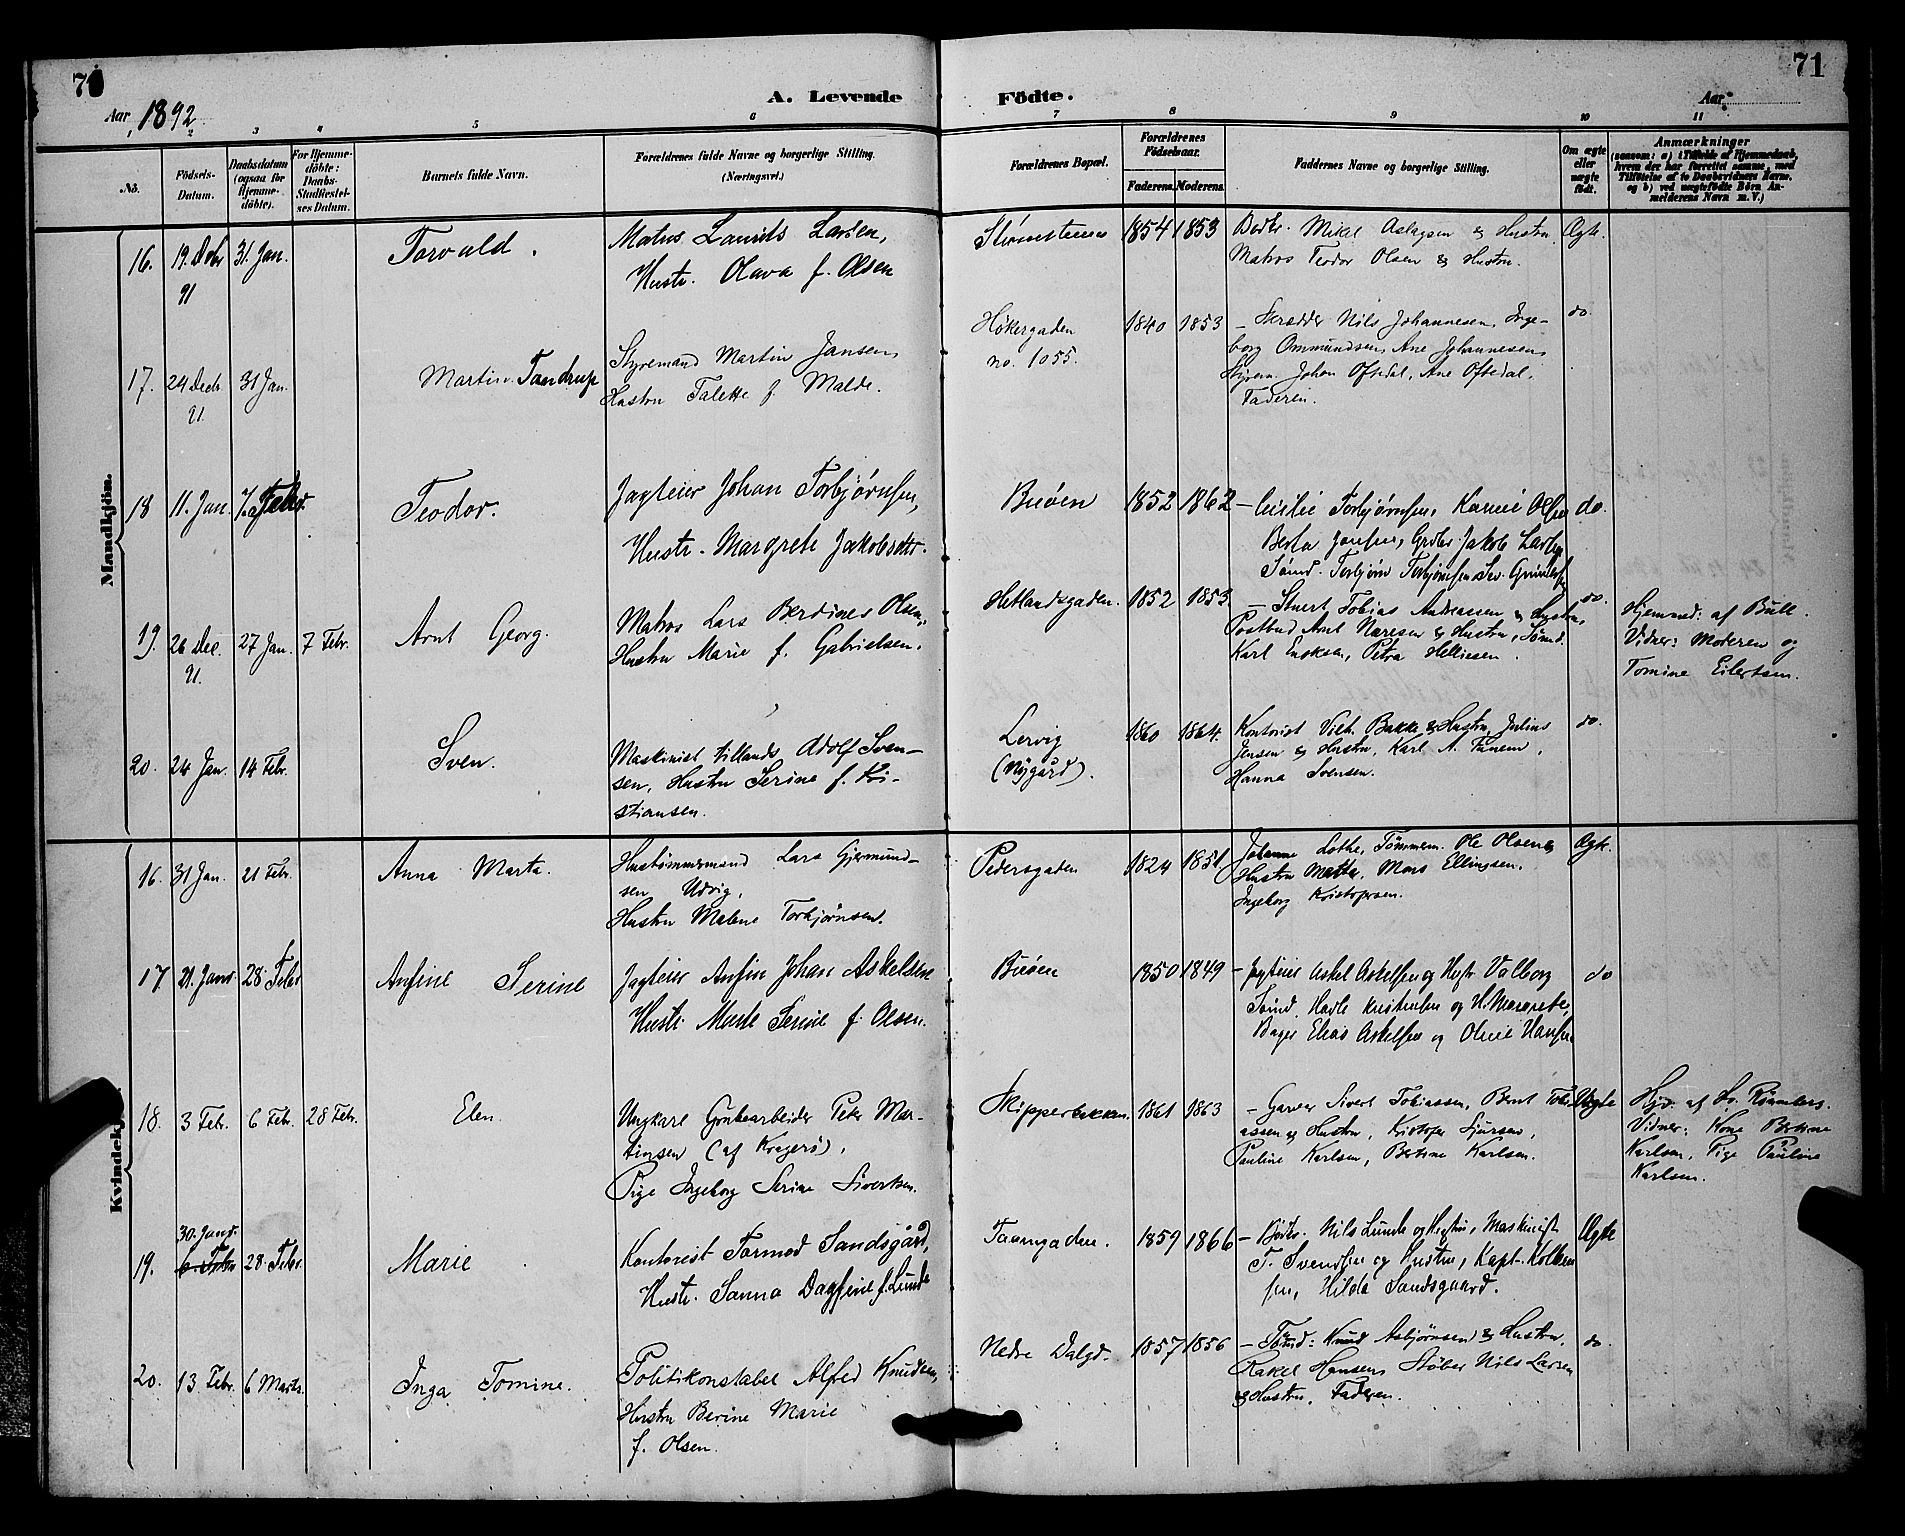 70
Aar 1892
A. Levende Fødte.
Aar
71
3 4 5 6 7 8 9 10 11
No.
Födsels-Datum.
Daabsdatum (ogsaa for Hjemmedöbte).
For Hjemmedöbte: Daabs-Stadfæstelses Datum.
Barnets fulde Navn.
Forældrenes fulde Navne og borgerlige Stilling. (Næringsvei.)
Forældrenes Bopæl.
Forældrenes Födselsaar.
Faderens. Moderens.
Faddernes Navne og borgerlige Stilling.
Om ægte eller uægte født.
Anmærkninger
(saasom: a) i Tilfælde af Hjemmedaab, hvem der har forrettet samme, med Tilføielse af to Daabsvidners Navne, og b) ved uægtefødte Børn Anmelderens Navn m. V.)
Mandkjön.
16. 19. Debr 91 31 Jan. Torvald.
Matros Laurits Larsen,
Hustr. Olava f. Olsen
1854 1853
Mikal Aslagsen & Hustru
Matros Teodor Olsen & Hustru.
Ægte.
17. 24 Decb. 91. 31 Jan. Martin Tandrup
Styremand Martin Jansen,
Hustru Talette f. Malde.
Høkergaden
no. 1055.
1840 1853
– Skrædder Nils Johannesen, Inge-
borg Ommundsen, Ane Johannesen,
Styrm. Johan Oftedal, Ane Oftedal,
Faderen.
do.
18 11. Jan. 7. Febr. Teodor.
Jagteier Johan Torbjørnsen,
Hustr. Margrete Jakobsdtr.
Buøen
1852 1862
– Torbjørnsen, Olsen
Berta Jansen, Jakob Larsen
Sømd. Torbjørn Torbjørnsen
do.
19. 26 Dec. 91. 27 Jan. 7 Febr. Arnt Georg.
Matros Lars Berdines Olsen,
Hustru Marie f. Gabrielsen.
Hetlandsgaden.
1852 1853
– Stuert Tobias Andreassen & Hustru,
Postbud Arnt Naresen & Hustru, Sømd.
Karl , Petra Helliesen.
do.
Hjemmed: af Bull.
Vidner: Moderen og
Tomine Eilertsen.
20. 24 Jan. 14 Febr. Sven.
Maskinist tillands Adolf Sven-
sen, Hustru Serine f. Kri-
stiansen.
Lervig
(Nygård).
1860 1864.
Kontorist Vilh. Bakke & Hustru, Julius
Jensen & Hustru, Karl A. ,
Hanna Svensen.
do.
Kvindekj.
16. 31 Jan. 21 Febr. Anna Marta.
Hustømmermand Lars Gjermund-
sen Udvig,
Hustru Malene Torbjørnsen.
Pedersgaden
1824 1851
Johanne Lothe, Tømmerm. Ole Olsen &
Hustru Marta, Mons Ellingsen,
Ingeborg Kristofersen.
Ægte.
17 21. Janr. 28 Febr Anfine Serine
Jagteier Anfin Johan Askelsen
Hustr. Marte Serine f. Olsen.
Buøen
1850 1849
– Jagteier Askel Askelsen og Hustr Valborg
Sømd. Kristensen og H. Margrete,
Bager Elias Askelsen og Oline Hansen
do
18. 3 Febr. 6 Febr. 28 Febr. Elen.
Ungkarl Grubearbeider Peter Mar-
tinsen (af Kragerø),
Pige Ingeborg Serine Sivertsen.
Skipperbakken.
1861 1863
– Garver Sivert Tobiassen, Bernt Tobi-
assen & Hustru, Kristofer Sjursen,
Pauline Karlsen, Betzine Karlsen.
Uægte
Hjd. af
Vidner: Kone Betzine
Karlsen, Pige Pauline
Karlsen.
19. 30. Janr. 6 Febr 28 Febr. Marie
Kontorist Tormod Sandsgård,
Hustr. Sanna Dagfine f. Lunde
1859 1866
– Bødk. Nils Lunde og Hustru, Maskinist
T. Svendsen og Hustru, Kapt.
sen, Hilda Sandsgaard.
Ægte
20. 13. Febr. 6 Marts. Inga Tomine.
Politikonstabel Alfred Knudsen,
Hustru Berine Marie
f. Olsen.
Nedre Dalgd.
1857 1856
– Tømd: Knud Asbjørnsen & Hustru,
Rakel Hansen, Støber Nils Larsen
& Hustru. Faderen.
do